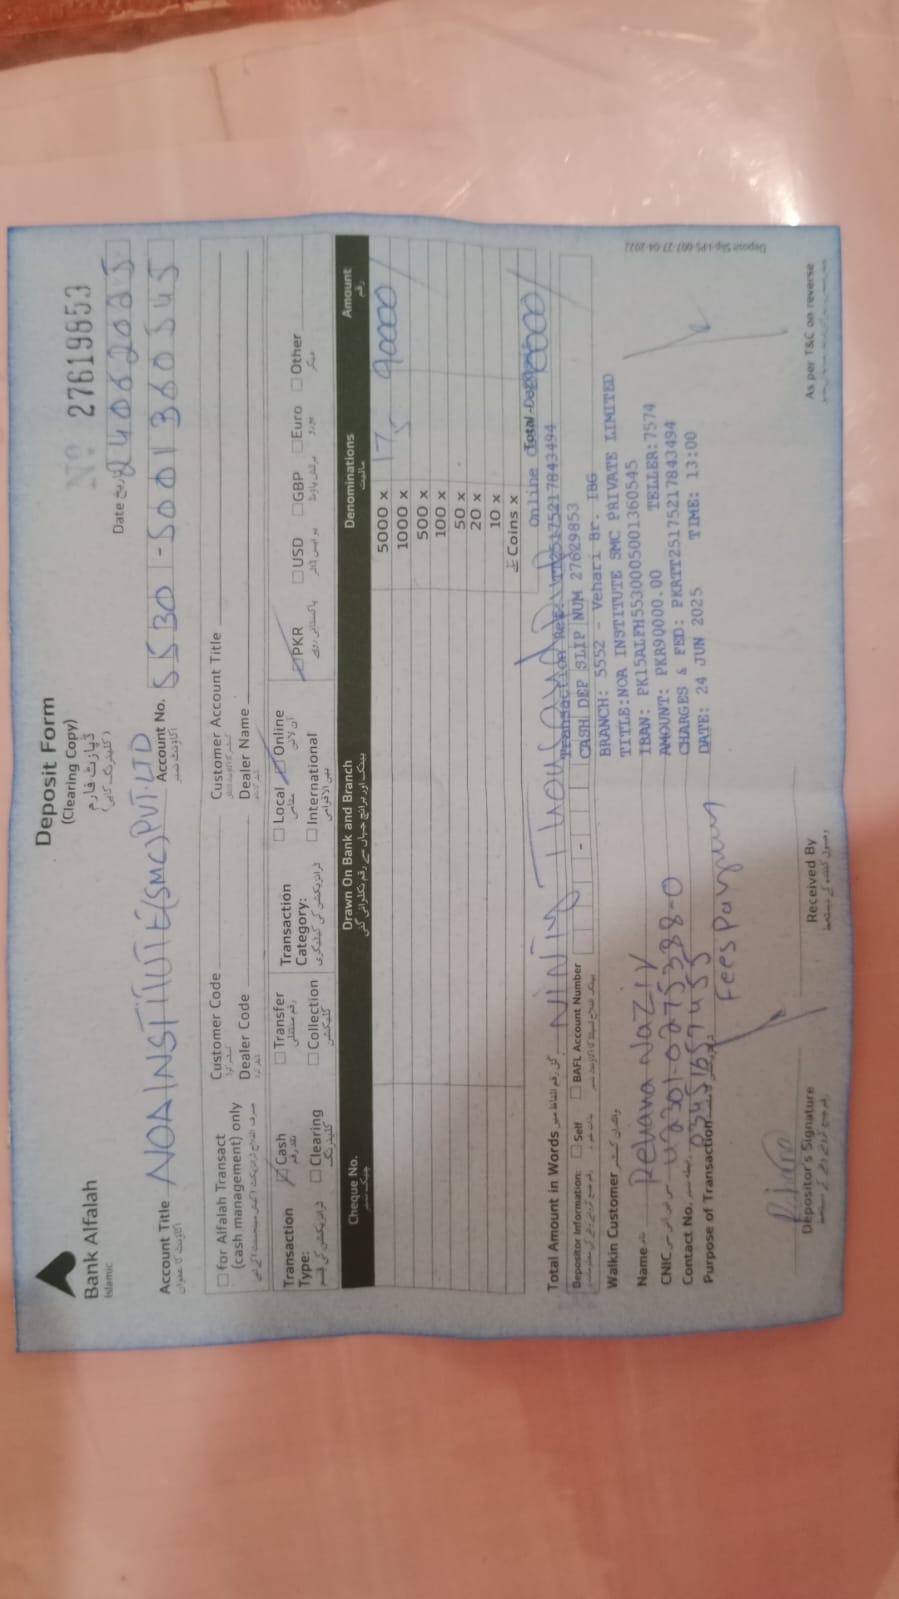 Bank Alfalah
Islamic
Deposit Form
(Clearing Copy)
ڈپازٹ فارم
(کلیئرنگ کاپی)
Nº 27619853
Date تاریخ 24062025
Account Title NOA INSTITUTE (SMC) PVT. LTD
اکاؤنٹ کا عنوان
Account No. 5530-5001360545
اکاؤنٹ نمبر
for Alfalah Transact
(cash management) only
Customer Code
Dealer Code
Customer Account Title
Dealer Name
Transaction Type:
Cash
Clearing
Transfer
Collection
Transaction Category:
Local
Online
International
PKR
USD
GBP
Euro
Other
Cheque No.
Drawn On Bank and Branch
Denominations
Amount
رقم
5000 x 90000/
1000 x
500 x
100 x
50 x
20 x
10 x
Coins x
Total Amount in Words NINTY Thousand
Online
Depositor Information: Self BAFL Account Number
CASH DEP SLIP NUM 27629853
BRANCH: 5552 - Vehari Br. IBG
TITLE:NOA INSTITUTE SMC PRIVATE LIMITED
IBAN: PK15ALFH5530005001360545
AMOUNT: PKR90000.00 TELLER:7574
CHARGES & FED: PKRTT2517521784­3494
DATE: 24 JUN 2025 TIME: 13:00
Walkin Customer
Name Rehana Nazir
CNIC
Contact No.
Purpose of Transaction Fees
Depositor's Signature
Received By
As per T&C on reverse